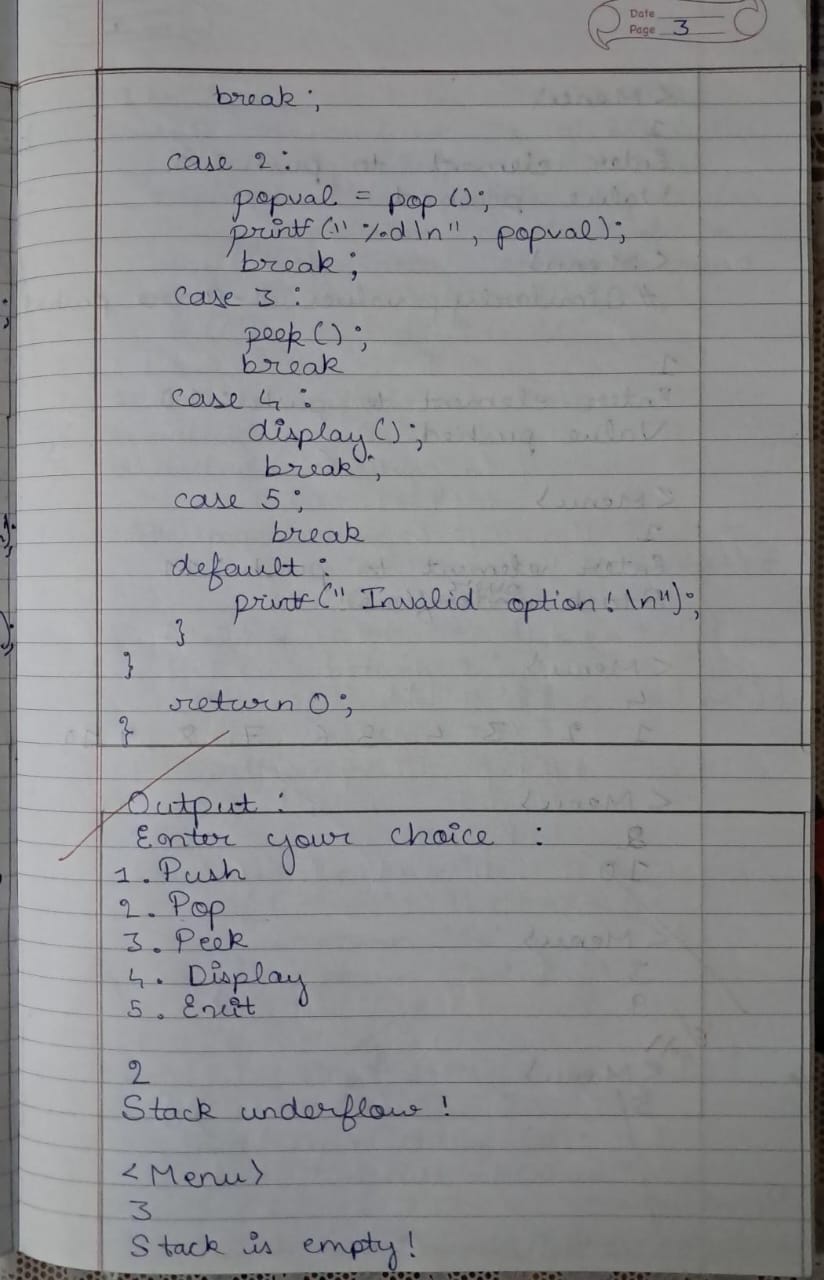 Date
Page 3
break;
case 2:
popval = pop();
printf("%d\n", popval);
break;
case 3:
peek();
break
case 4:
display();
break;
case 5;
break
default:
printf("Invalid option!\n");
}
}
return 0;
}
Output:
Enter your choice:
1. Push
2. Pop
3. Peek
4. Display
5. Exit
2
Stack underflow!
<Menu>
3
Stack is empty!